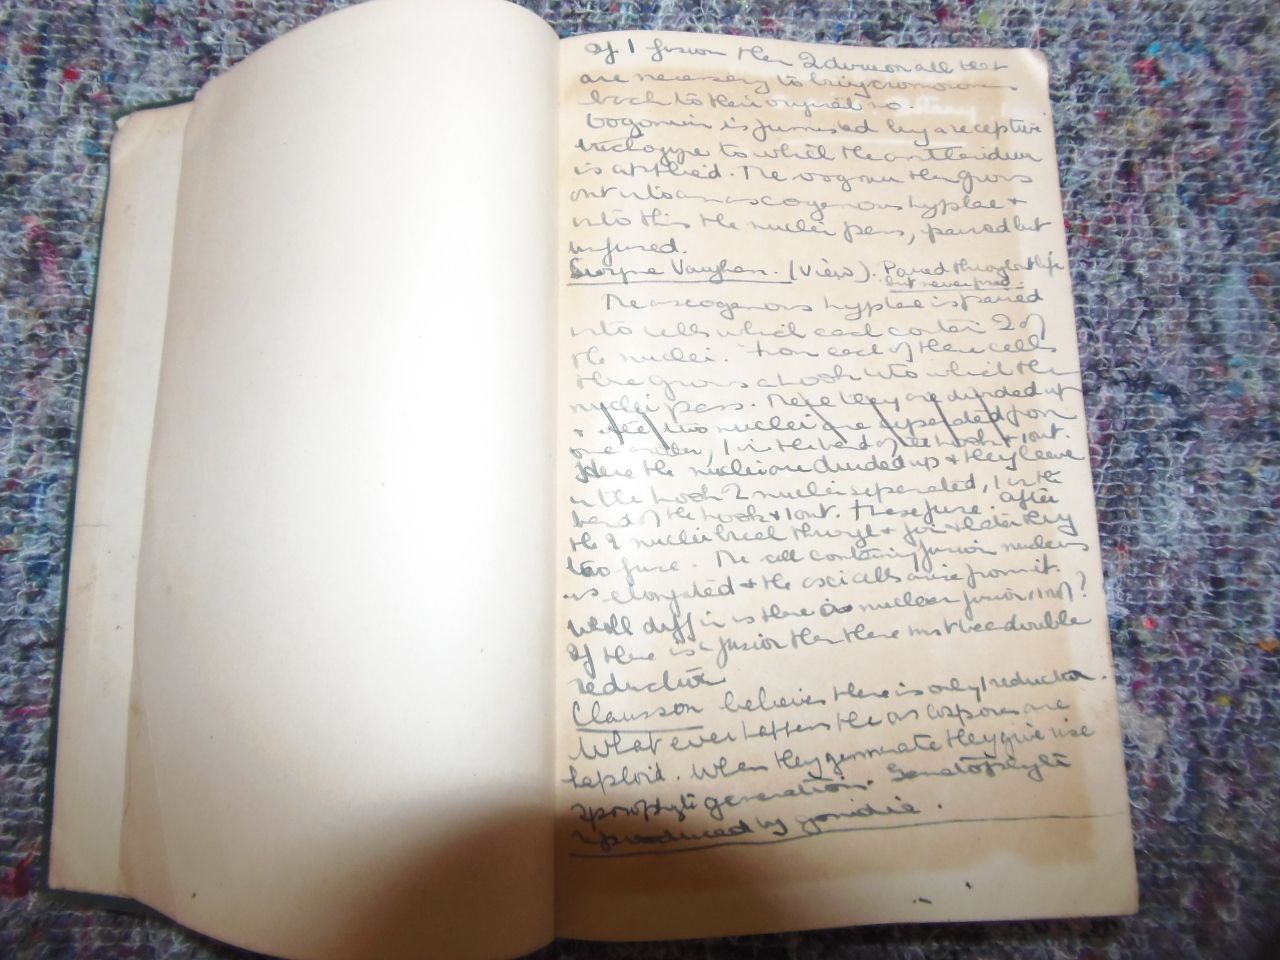 If 1 fusion then 2 division all that
are necessary to bring cromosomes
back to their original no.
Oogonium is furnished by a receptive
trichogyne to which the antheridium
is applied. The oogonium then grows
out into an ascogenous hyphae &
into this the nuclei pass, paired but
unfused.
Gwynne Vaughan. (View). Paired through life
but never fused.
The ascogenous hyphae is
into cells which each contain 2 of
the nuclei. From each of these cells
there grows a hook into which the
nuclei pass. There they are divided up
& two nuclei are seperated from
one another, 1 in the bend of the hook & 1 out.
Here the nuclei are divided up & they leave
in the hook 2 nuclei seperated, 1 in the
bend of the hook & 1 out. These fuse. After
the 2 nuclei break through & join & later they
too fuse. The cell containing fusion nucleus
is elongated & the asci cells arise from it.
What diff in is there in nuclear fusion, 1 not?
If there is a fusion then there must be a double
reduction
Claussen believes there is only 1 reduction.
What ever happens the ascospores are
haploid. When they germinate they give rise
sporophyte generation. Gametophyte
reproduced by gonidia.